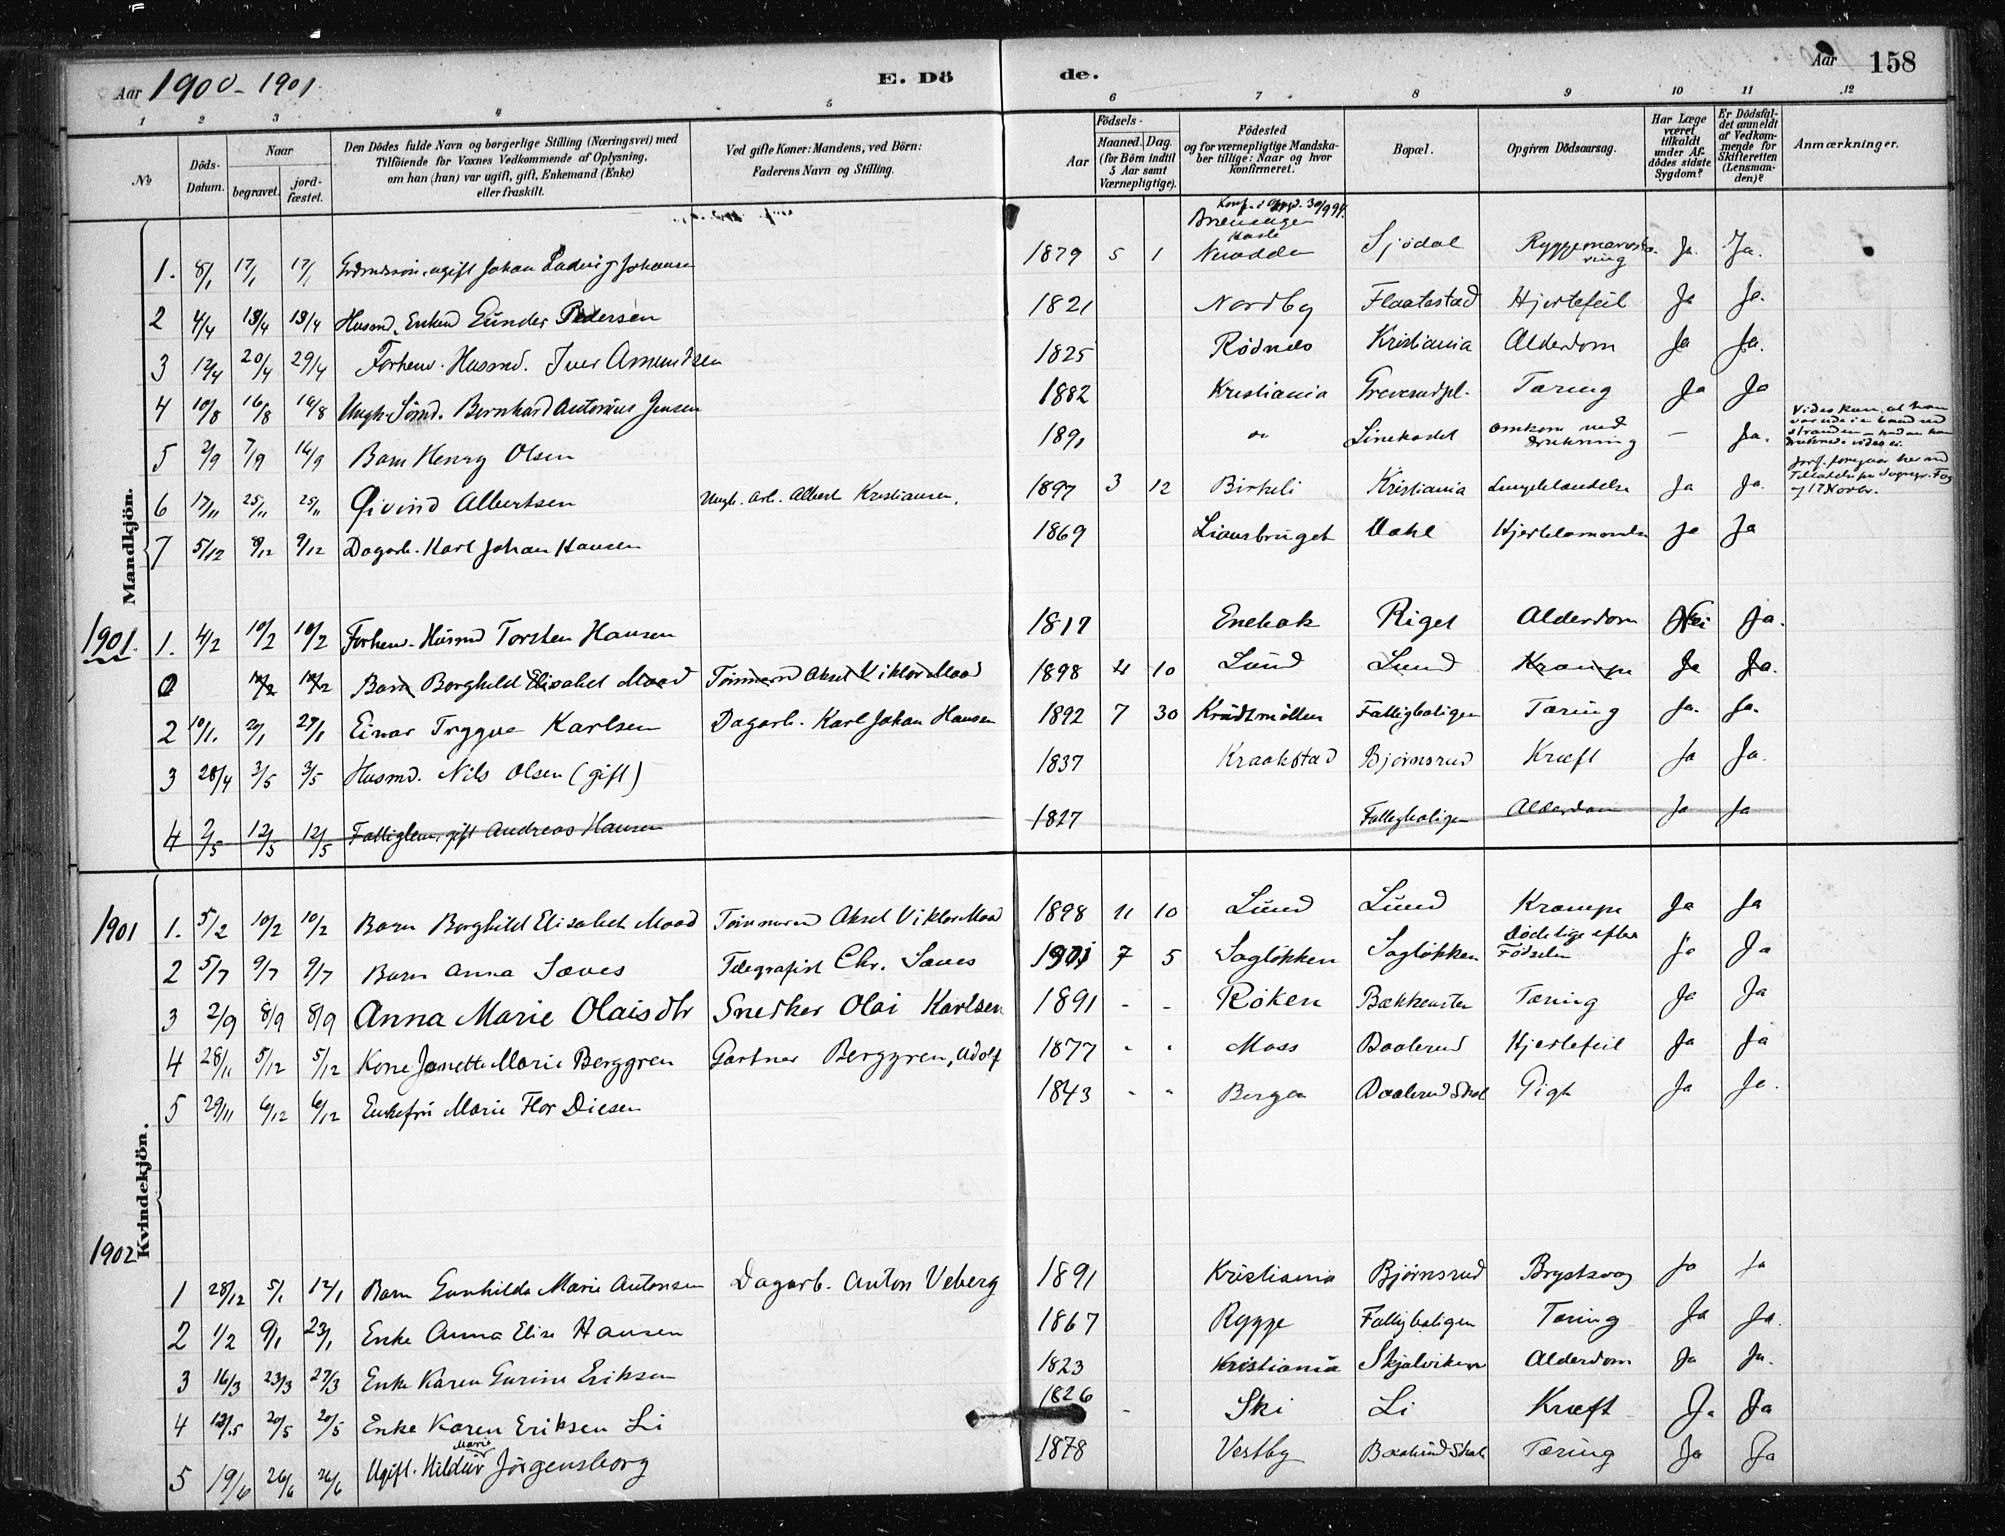 Aar 1900-1901 E. Dö de. Aar 158
1 2 3 4 5 6 7 8 9 10 11 12
№ Döds-Datum. Naar begravet. jordfæstet. Den Dödes fulde Navn og borgerlige Stilling (Næringsvei) med Tilföiende for Voxnes Vedkommende af Oplysning, om han (hun) var ugift, gift, Enkemand (Enke) eller fraskilt. Ved gifte Koner: Mandens, ved Börn: Faderens Navn og Stilling. Födsels- Aar Maaned. Dag. (for Börn indtil 5 Aar samt Værnepligtige). Födested og for værnepligtige Mandskaber tillige: Naar og hvor konfirmeret. Bopæl. Opgiven Dödsaarsag. Har Læge været tilkaldt under Afdödes sidste Sygdom? Er Dödsfaldet anmeldt af Vedkommende for Skifteretten (Lensmanden)? Anmærkninger.
Mandkjön.
1. 8/1 17/1 17/1 ugift Johan Ludvig Johansen 1879 5 1 Sjødal Ja. Ja.
2 4/4 13/4 13/4 Husmd. Enkem Gunder Pedersen 1821 Nordby Flaatestad Hjertefeil Ja Ja.
3 12/4 20/4 29/4 Forhenv. Husmd. Iver Amundsen 1825 Rødnes Kristiania Alderdom Ja Ja.
4 10/8 16/8 16/8 Ungk. Sömd. Bernhard Antonius Jensen 1882 Kristiania Grevsrudpl. Tæring Ja Ja
5 2/9 7/9 16/9 Barn Henry Olsen 1891 Linekastet omkom ved drukning — Ja.
6 17/11 25/11 25/11 Øivind Albertsen Ungk. arb. Albert Kristiansen. 1897 3 12 Birkeli Kristiania Lungebetændelse Ja Ja.
7 5/12 8/12 9/12 Dagarb. Karl Johan Hansen 1869 Liansbruget Dahl Ja Ja
1901. 1. 4/2 10/2 10/2 Forhenv. Husmd Torsten Hansen 1817 Enebak Riget Alderdom Nei Ja.
0 10/2 10/2 Barn Borghild Elisabet Moad Tömmermd Aksel Viktor Moad 1898 11 10 Lund Lund Krampe Ja Ja.
2 10/1. 20/1 27/1 Einar Trygve Karlsen Dagarb. Karl Johan Hansen 1892 7 30 Krudtmöllen Fattigboligen Tæring Ja. Ja.
3 28/4 3/5 3/5 Husmd. Nils Olsen (gift) 1837 Kraakstad Bjørnsrud Kræft Ja Ja.
4 2/5 12/5 12/5 Fattiglem, gift Andreas Hansen 1827 Fattigboligen Alderdom Ja Ja
Kvindekjön.
1901 1. 5/2 10/2 10/2 Barn Borghild Elisabeth Moad Tömmermd Aksel Viktor Moad 1898 11 10 Lund Lund Krampe Ja Ja
2 5/7 9/7 9/7 Barn Anna Sæves Telegrafist Chr. Sæves 1901 7 5 Sagløkken Sagløkken Död lige efter Födselen Ja Ja
3 2/9 8/9 8/9 Anna Marie Olaisdtr Snedker Olai Karlsen 1891 - - Röken Bækkensten Tæring Ja Ja
4 28/11 5/12 5/12 Kone Janette Marie Berggren Gartner Berggren, Adolf 1877 - - Moss Baalerud Hjertefeil Ja Ja
5 29/11 6/12 6/12 Enkefru Marie Flor Diesen 1843 - - Bergen Baalerud Skol Gigt Ja Ja.
1902
1 28/12 5/1 12/1 Barn Gunhilda Marie Antonsen Dagarb. Anton Veberg 1891 Kristiania Bjørnsrud Brystsvag Ja Ja
2 1/2 9/1 23/1 Enke Anna Elise Hansen 1867 Rygge Fattigboligen Tæring Ja Ja.
3 16/3 23/3 27/3 Enke Karen Gurine Eriksen 1823 Kristiania Skjælviken Alderdom Ja Ja.
4 13/5 20/5 20/5 Enke Karen Eriksen Li 1826 - Ski Li Kræft Ja Ja
5 19/6 26/6 26/6 Ugift. Hildur Marie Jörgensborg 1878 Vestby Baalerud Skole Tæring Ja Ja